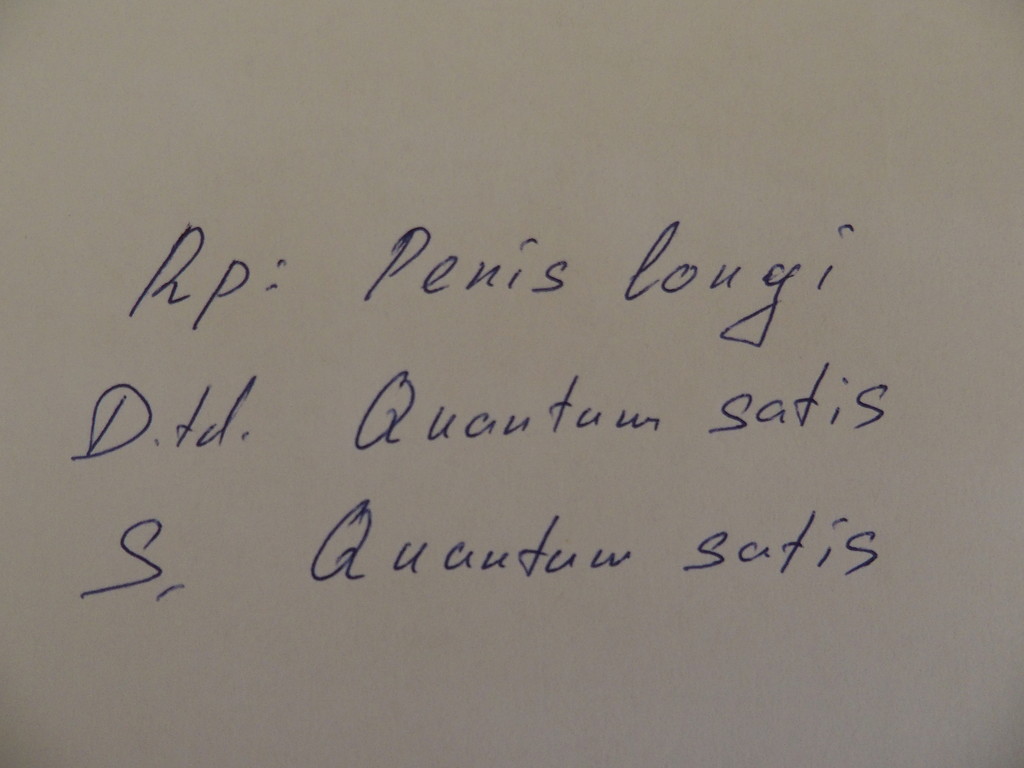 Rp: Penis longi
D.td. Quantum satis
S. Quantum satis